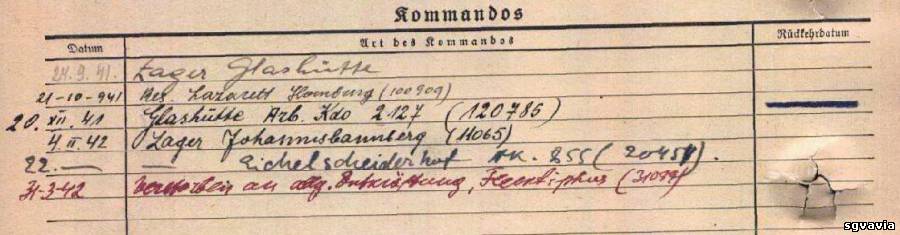 Kommandos
Datum Art des Kommandos Rückkehrdatum
24.9.41. Lager Glashütte
21-10-941 Res. Lazarett Homburg (100909)
20. XII. 41 Glashütte Arb. Kdo 2127 (120785)
4. II. 42 Lager Johannisbannberg (14065)
22. — — Eichelscheiderhof (20451).
31-3-42 Verstorben an allg. Entkräftung, Flecktiphus
sgvavia